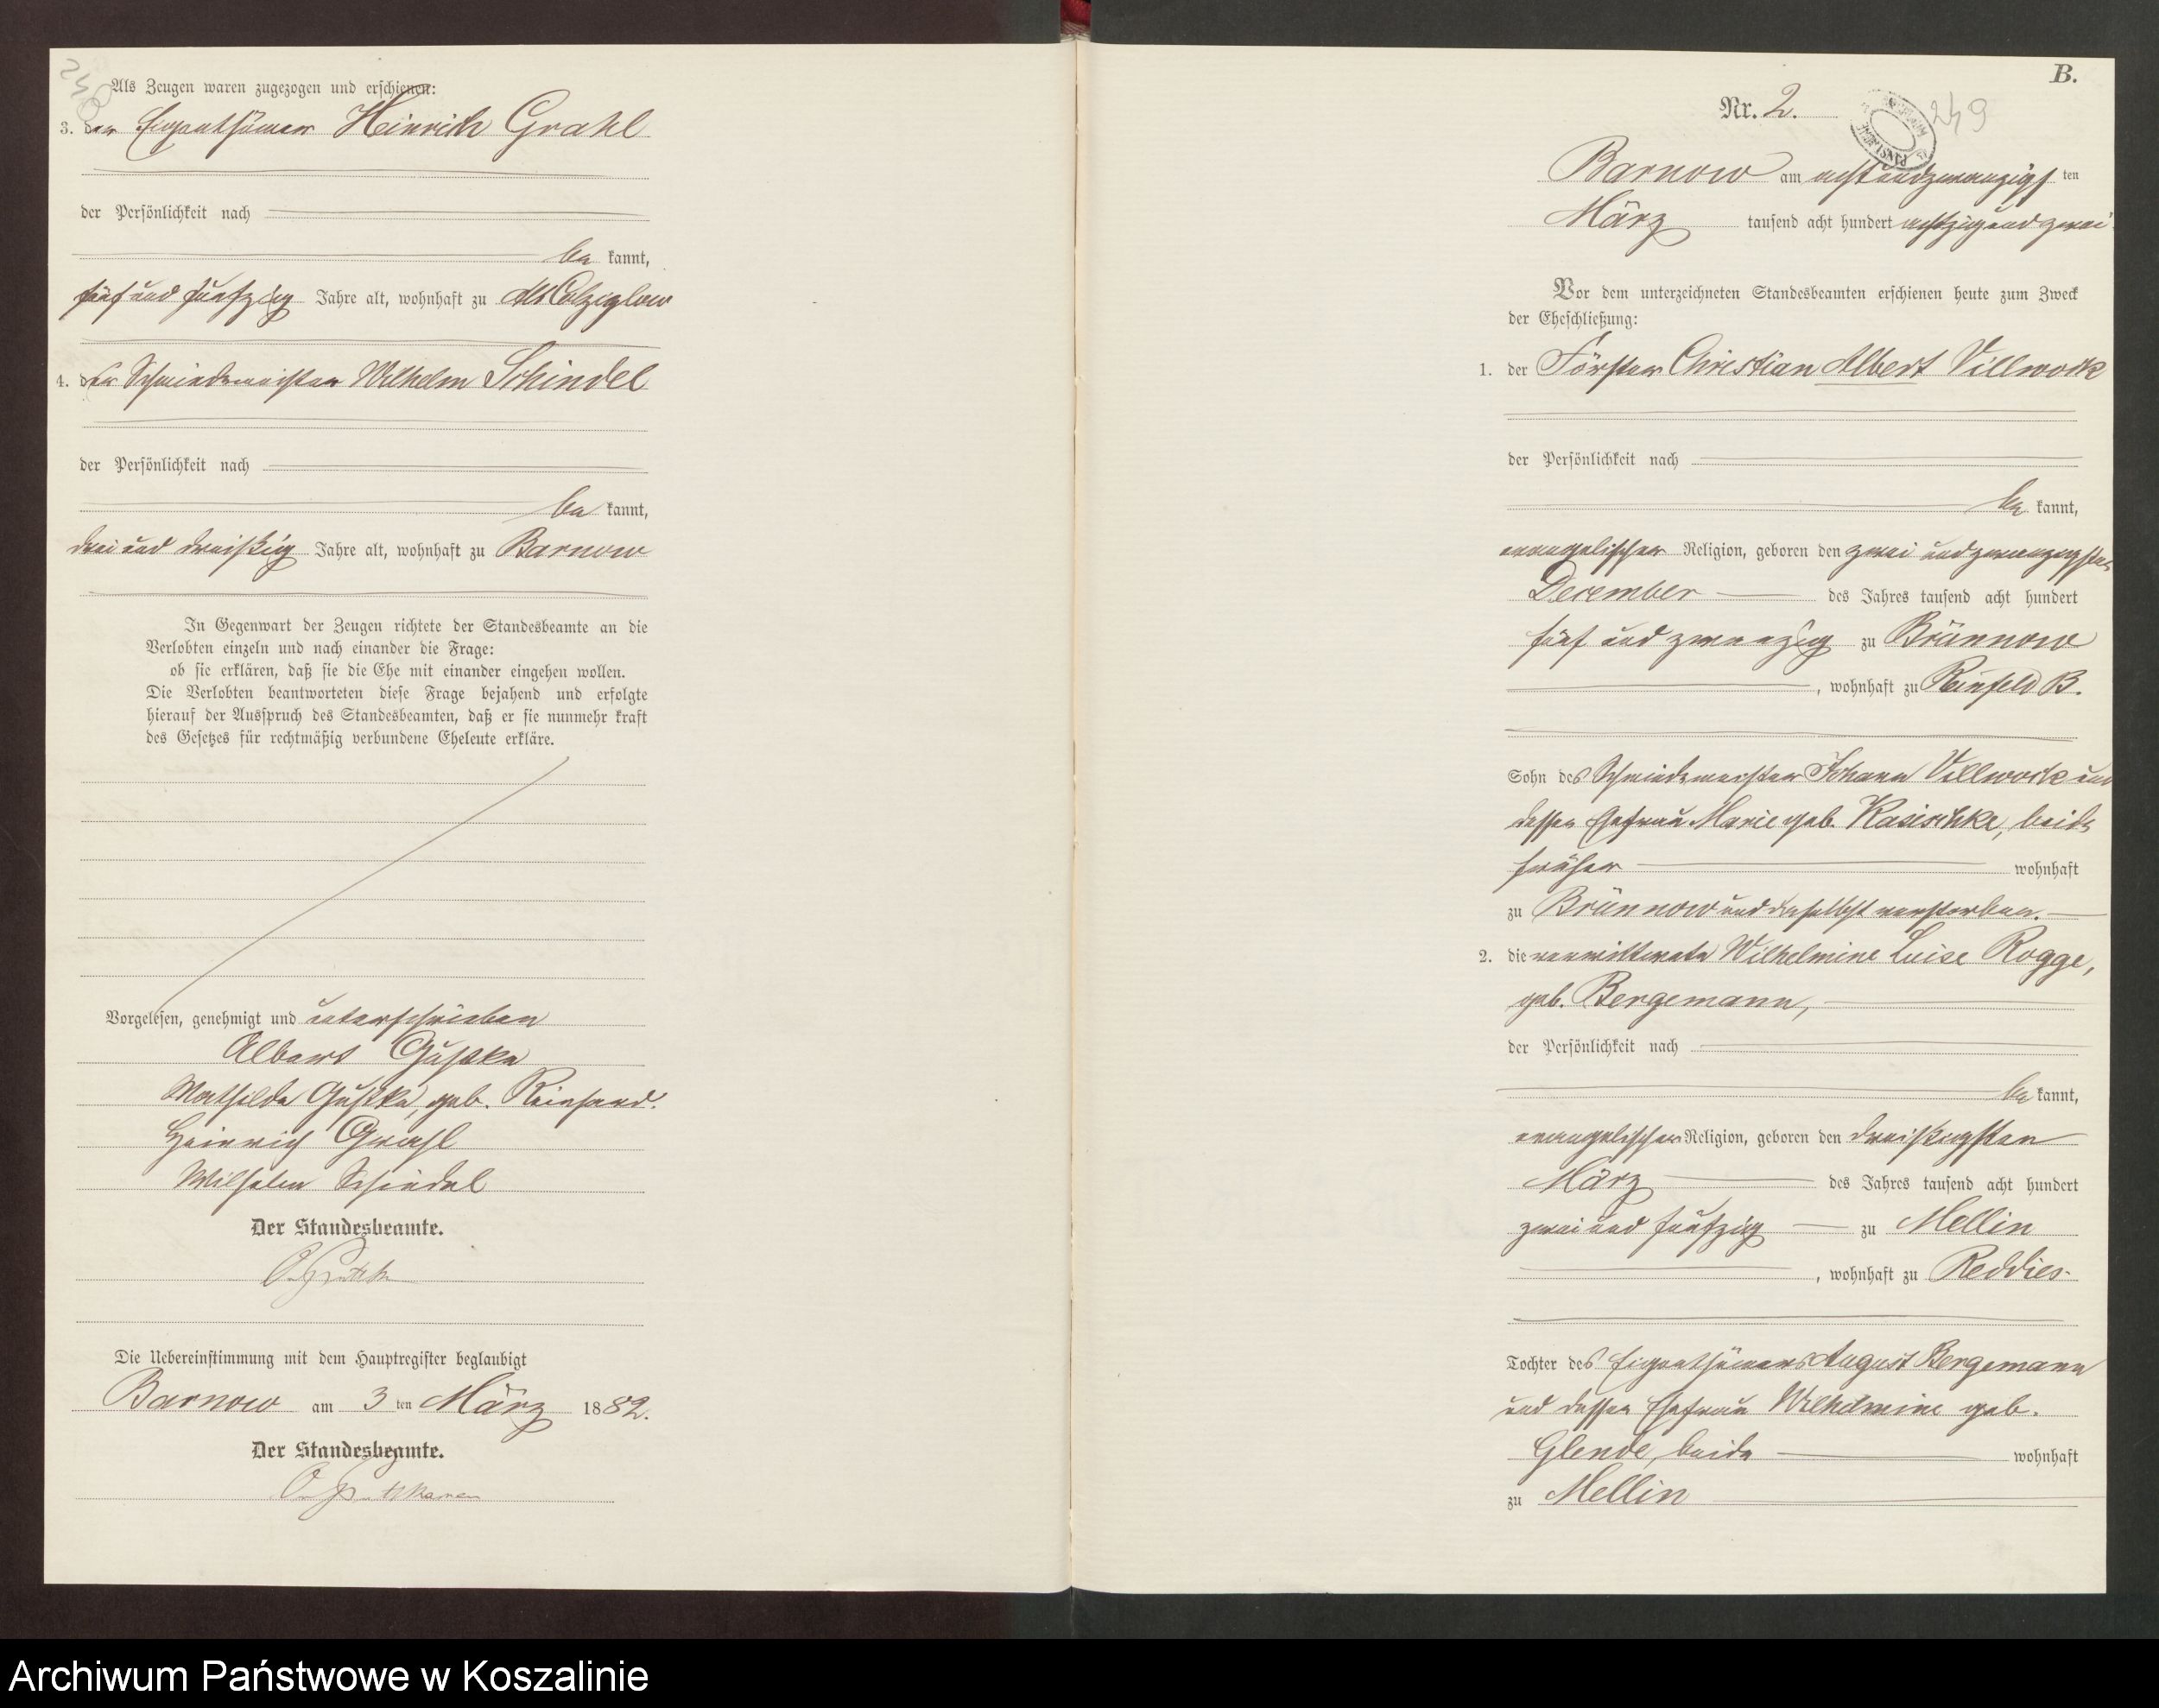 Als Zeugen waren zugezogen und erschienen:
3. der Eigenthümer Heinrich Grahl
der Persönlichkeit nach
be kannt,
fünf und funfzig Jahre alt, wohnhaft zu Alt Colziglow
4. der Schmiedemeister Wilhelm Schindel
der Persönlichkeit nach
be kannt,
drei und dreißig Jahre alt, wohnhaft zu Barnow
In Gegenwart der Zeugen richtete der Standesbeamte an die
Verlobten einzeln und nach einander die Frage:
ob sie erklären, daß sie die Ehe mit einander eingehen wollen.
Die Verlobten beantworteten diese Frage bejahend und erfolgte
hierauf der Ausspruch des Standesbeamten, daß er sie nunmehr kraft
des Gesetzes für rechtmäßig verbundene Eheleute erkläre.
Vorgelesen, genehmigt und unterschrieben
Albert Gustke
Mathilde Gustke, geb. Reinhard.
Heinrich Grahl
Wilhelm Schindel
Der Standesbeamte.
Die Uebereinstimmung mit dem Hauptregister beglaubigt
Barnow am 3 ten März 1882.
Der Standesbeamte.
B.
Nr. 2.
249
Barnow am achtundzwanzigs ten
März tausend acht hundert achtzig und zwei
Vor dem unterzeichneten Standesbeamten erschienen heute zum Zweck
der Eheschließung:
1. der Förster Christian Albert Villwock
der Persönlichkeit nach
be kannt,
evangelischer Religion, geboren den zwei und zwanzigsten
December des Jahres tausend acht hundert
fünf und zwanzig zu Brünnow
, wohnhaft zu Reinfeld B.
Sohn des Schmiedemeister Johann Villwock und
dessen Ehefrau Marie geb. Kasischke, beide
früher wohnhaft
zu Brünnow und daselbst verstorben.
2. die verwittwete Wilhelmine Luise Rogge,
geb. Bergemann,
der Persönlichkeit nach
be kannt,
evangelischer Religion, geboren den dreißigsten
März des Jahres tausend acht hundert
zwei und funfzig zu Mellin
, wohnhaft zu Reddies
Tochter des Eigenthümers August Bergemann
und dessen Ehefrau Wilhelmine geb.
Glende, beide wohnhaft
zu Mellin
Archiwum Państwowe w Koszalinie